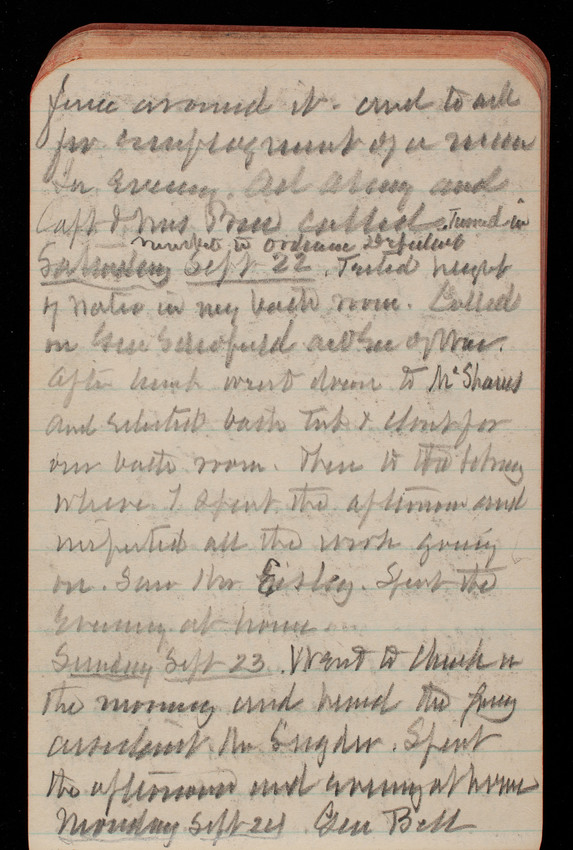 fence around it. and to ask
for employment of a man
In Evening. Col Abney and
Capt & Mrs Bell called. Turned in
report to Ordnance
Saturday Sept 22. Tested height
of water in my bath room. Called
on Gen Schofield act Sec of War.
After lunch went down to McShanes
and selected bath tub & closet for
our bath room. Then to the library
where I spent the afternoon and
inspected all the work going
on. Saw Mr Eisley. Spent the
Evening at home
Sunday Sept 23. Went to Church in
the morning and heard the
assistant Mr Snyder. Spent
the afternoon and evening at home
Monday Sept 24 Gen Bell